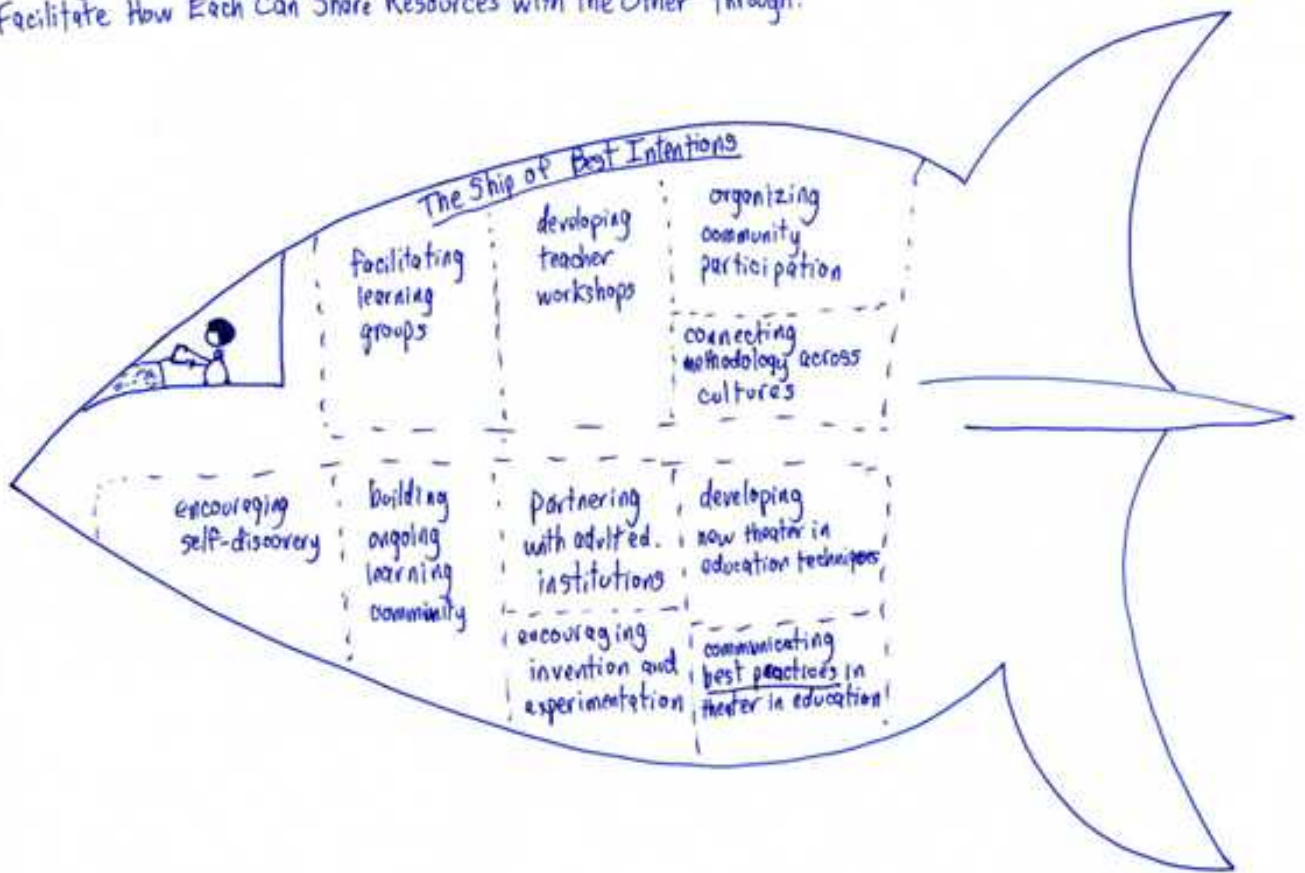 Facilitate How Each Can Share Resources with the Other Through:
The Ship of Best Intentions
facilitating
learning
groups
developing
teacher
workshops
organizing
community
participation
connecting
methodology across
cultures
encouraging
self-discovery
building
ongoing
learning
community
partnering
with adult ed.
institutions
encouraging
invention and
experimentation
developing
new theater in
education techniques
communicating
best practices in
theater in education